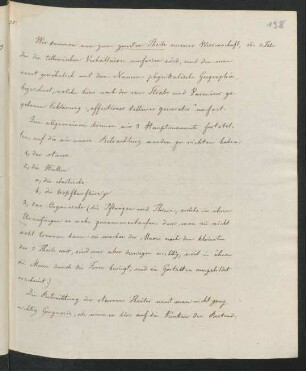 198
Wir kommen nun zum zweiten Theile unserer Wissenschaft, in
der die tellurischen Verhältnisse umfassen sind, und den man
sonst gewöhnlich mit dem Namen physikalische Geographie
bezeichnet, welche hier nach der von Strabo und Varenius ge-
gebenen Erklärung, "affectiones telluris generales" umfasst.
Im allgemeinen können wir 3 Hauptmomente feststel-
len, auf die wir unsere Betrachtung werden zu richten haben:
1, das starre
2, die Hüllen
a, die elastische
b, die tropfbarflüssige
3, das Organische (die Pflanzen und Thiere, welche in ihren
so sehr zusammenlaufen, dass man sie nicht
wohl trennen kann; sie machen der Masse nach den kleinsten
der 3 Theile aus, sind aber darum wichtig, weil in ihnen
die Masse durch die Form besiegt, und in Gestalten ausgebildet
erscheint)
Die Betrachtung des starren Theiles nennt man nicht ganz
richtig Geognosie, als wenn es hier auf die Kenntniss der Bestand-